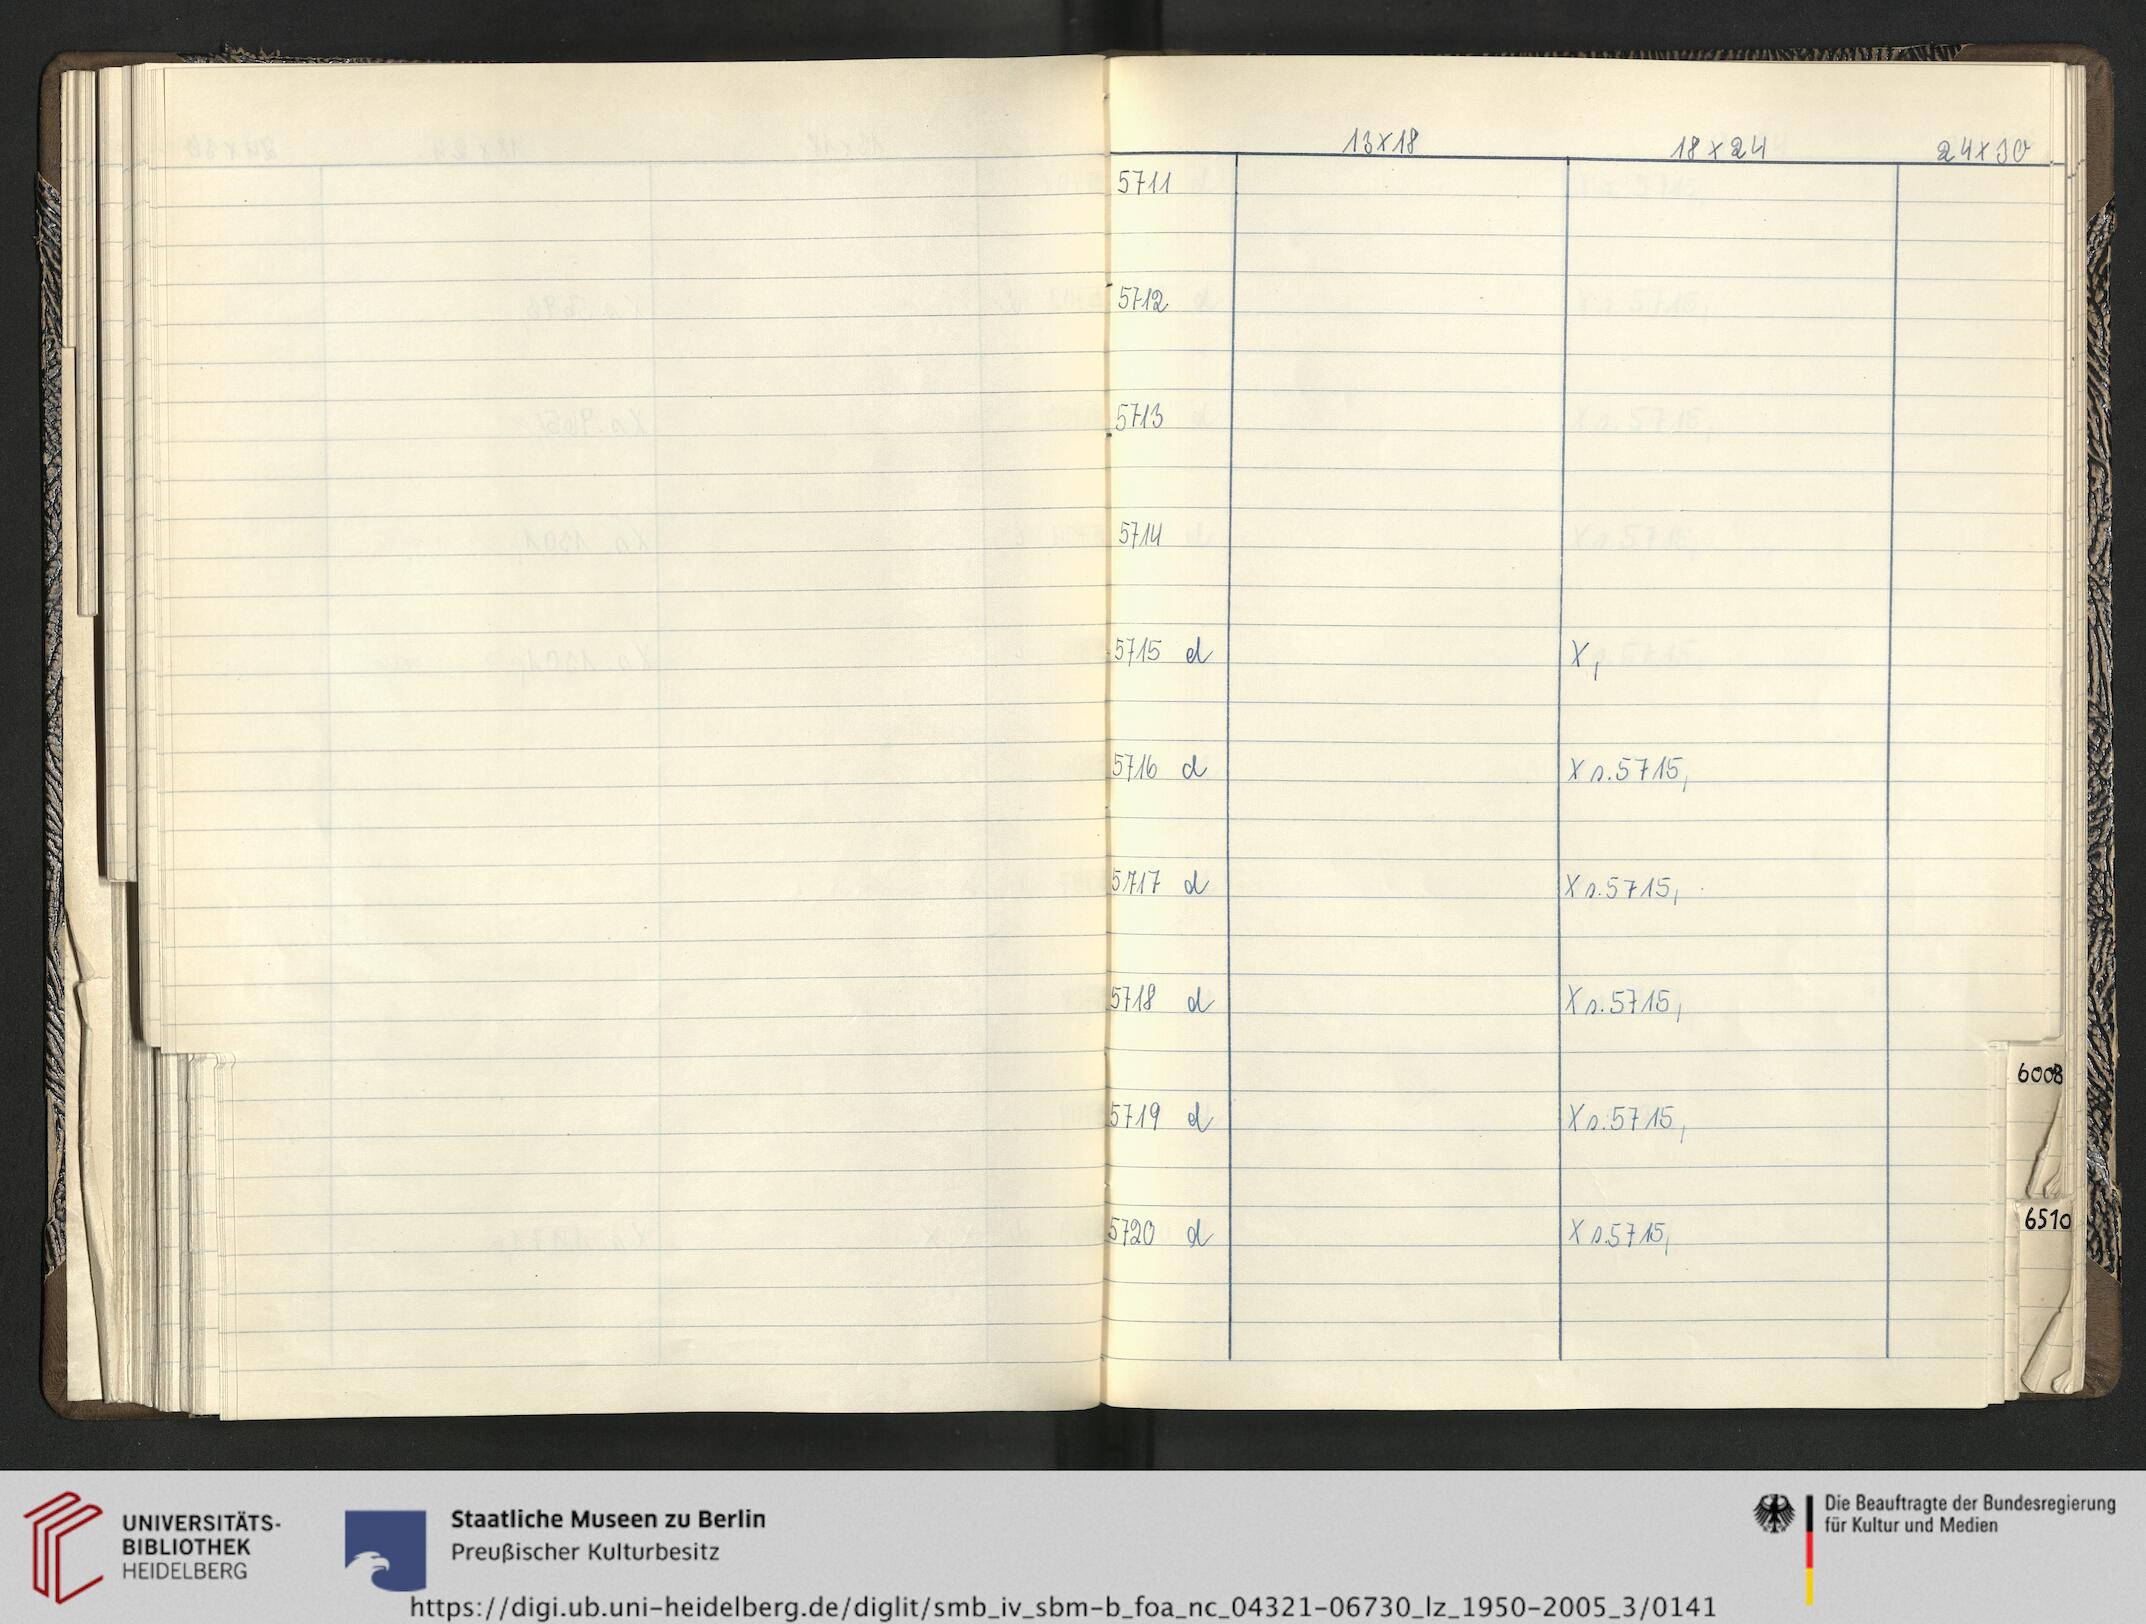 13x18 18x24 24x30
5711
5712
5713
5714
5715 d X,
5716 d X s. 5715,
5717 d X s. 5715,
5718 d X s. 5715,
5719 d X s. 5715,
5720 d X s. 5715,
6008
6510
UNIVERSITÄTS-
BIBLIOTHEK
HEIDELBERG
Staatliche Museen zu Berlin
Preußischer Kulturbesitz
Die Beauftragte der Bundesregierung
für Kultur und Medien
https://digi.ub.uni-heidelberg.de/diglit/smb_iv_sbm-b_foa_nc_04321-06730_lz_1950-2005_3/0141